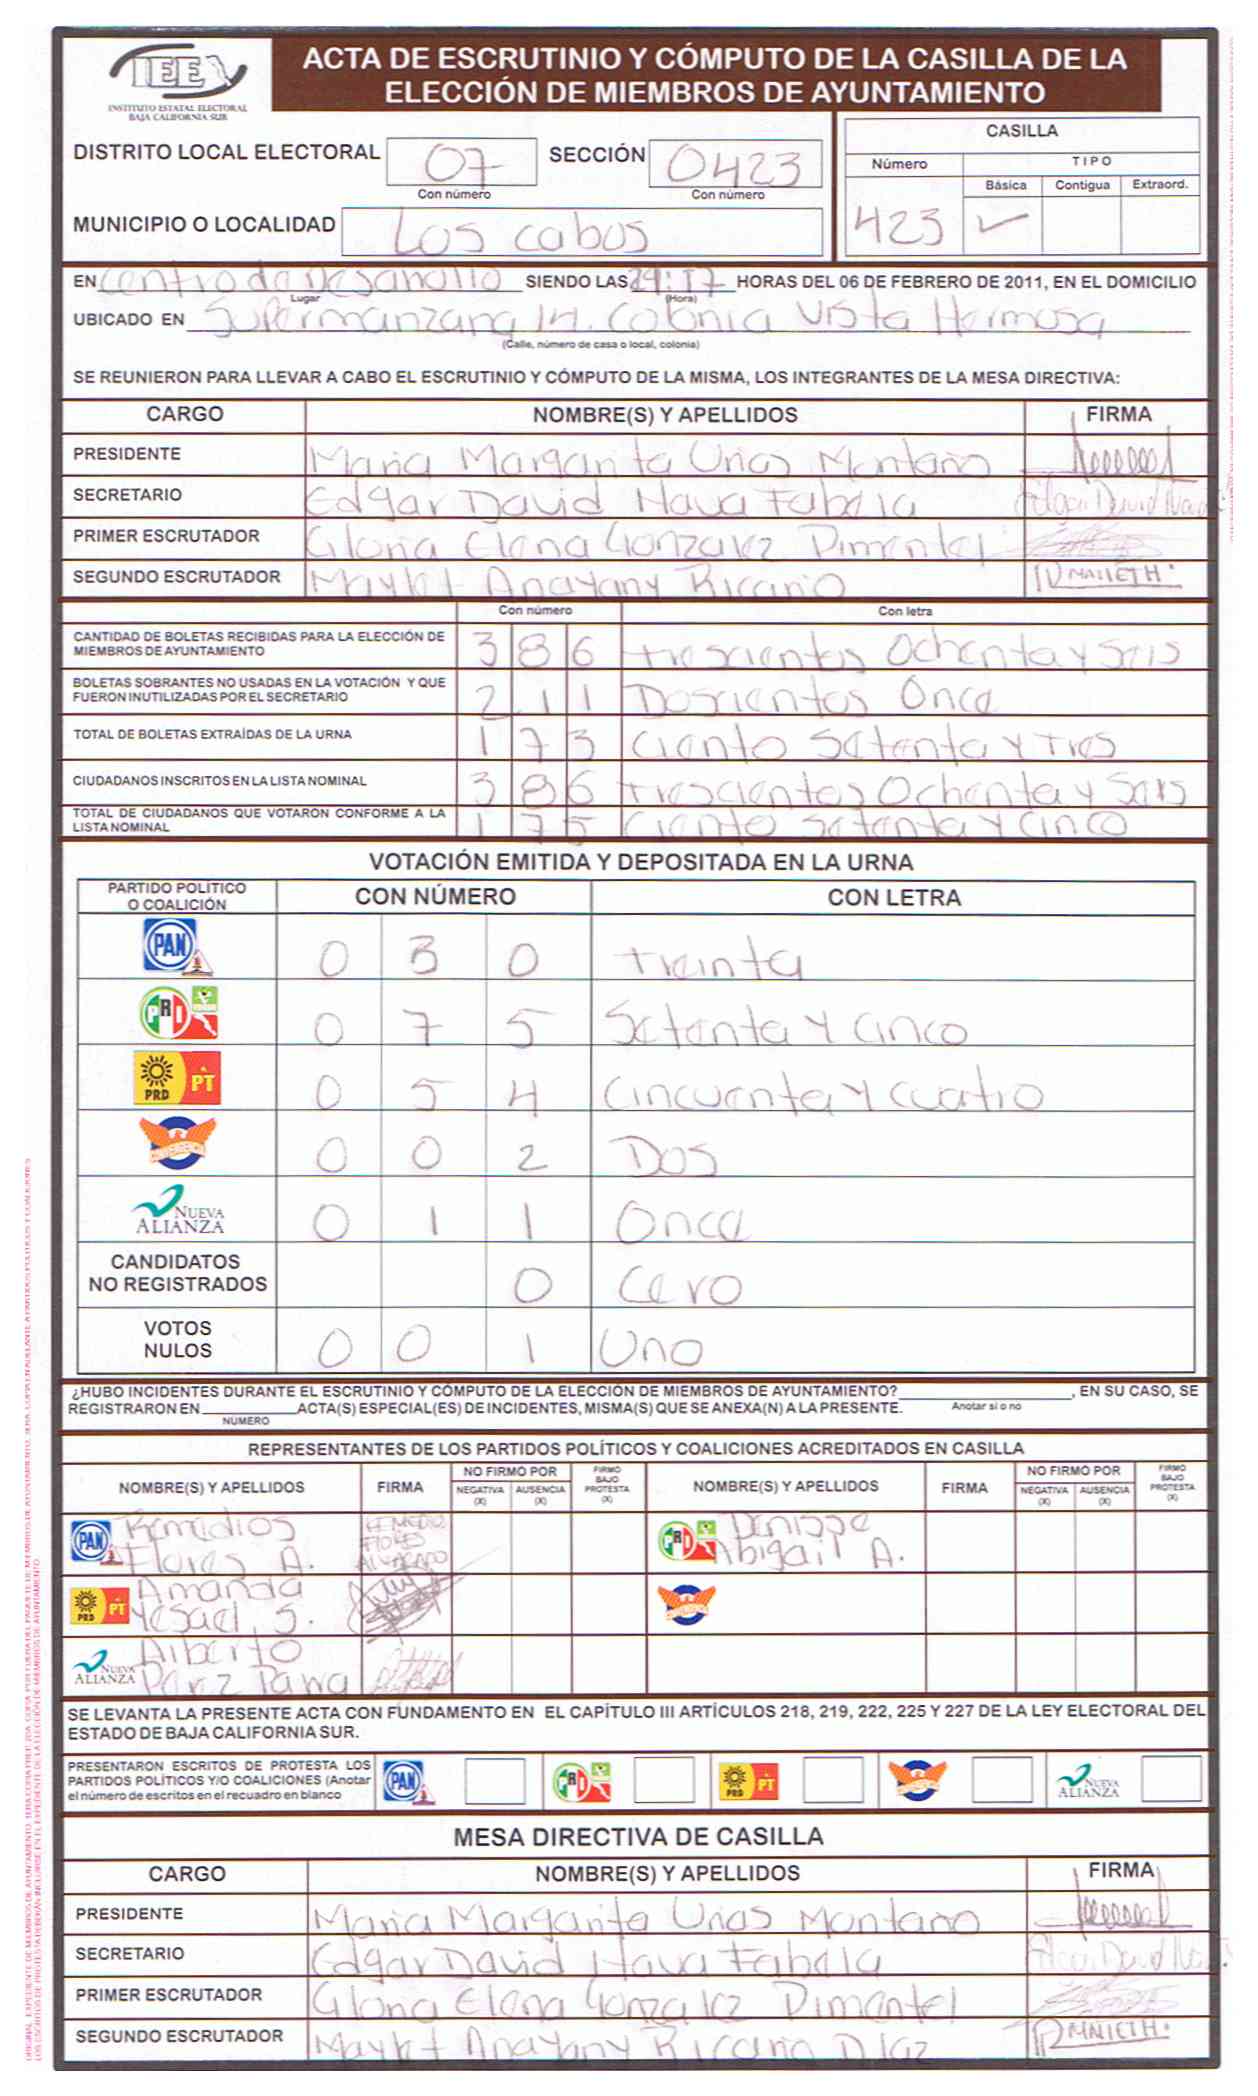 IEE
INSTITUTO ESTATAL ELECTORAL
BAJA CALIFORNIA SUR
ACTA DE ESCRUTINIO Y CÓMPUTO DE LA CASILLA DE LA
ELECCIÓN DE MIEMBROS DE AYUNTAMIENTO
DISTRITO LOCAL ELECTORAL 07 SECCIÓN 0423
Con número Con número
MUNICIPIO O LOCALIDAD Los cabos
CASILLA
Número TIPO
Básica Contigua Extraord.
423 ✓
EN Centro de Desarrollo SIENDO LAS HORAS DEL 06 DE FEBRERO DE 2011, EN EL DOMICILIO
Lugar (Hora)
UBICADO EN Supermanzana 14. Colonia Vista Hermosa
(Calle, número de casa o local, colonia)
SE REUNIERON PARA LLEVAR A CABO EL ESCRUTINIO Y CÓMPUTO DE LA MISMA, LOS INTEGRANTES DE LA MESA DIRECTIVA:
CARGO NOMBRE(S) Y APELLIDOS FIRMA
PRESIDENTE Maria Margarita Urias Montaño
SECRETARIO Edgar David Nava Fabela Edgar David Nava F.
PRIMER ESCRUTADOR Gloria Elena Gonzalez Pimentel
SEGUNDO ESCRUTADOR Maylet Anayany Riccario
Con número Con letra
CANTIDAD DE BOLETAS RECIBIDAS PARA LA ELECCIÓN DE
MIEMBROS DE AYUNTAMIENTO 3 8 6 trescientos Ochenta y Seis
BOLETAS SOBRANTES NO USADAS EN LA VOTACIÓN Y QUE
FUERON INUTILIZADAS POR EL SECRETARIO 2 1 1 Doscientos Once
TOTAL DE BOLETAS EXTRAÍDAS DE LA URNA 1 7 3 Ciento Setenta y Tres
CIUDADANOS INSCRITOS EN LA LISTA NOMINAL 3 8 6 trescientos Ochenta y Seis
TOTAL DE CIUDADANOS QUE VOTARON CONFORME A LA
LISTA NOMINAL 1 7 5 Ciento Setenta y Cinco
VOTACIÓN EMITIDA Y DEPOSITADA EN LA URNA
PARTIDO POLÍTICO
O COALICIÓN CON NÚMERO CON LETRA
PAN 0 3 0 treinta
PRI 0 7 5 Setenta y Cinco
PRD PT 0 5 4 Cincuenta y Cuatro
CONVERGENCIA 0 0 2 Dos
NUEVA ALIANZA 0 1 1 Once
CANDIDATOS
NO REGISTRADOS 0 Cero
VOTOS
NULOS 0 0 1 Uno
¿HUBO INCIDENTES DURANTE EL ESCRUTINIO Y CÓMPUTO DE LA ELECCIÓN DE MIEMBROS DE AYUNTAMIENTO? , EN SU CASO, SE
REGISTRARON EN ACTA(S) ESPECIAL(ES) DE INCIDENTES, MISMA(S) QUE SE ANEXA(N) A LA PRESENTE. Anotar si o no
NÚMERO
REPRESENTANTES DE LOS PARTIDOS POLÍTICOS Y COALICIONES ACREDITADOS EN CASILLA
NOMBRE(S) Y APELLIDOS FIRMA NO FIRMO POR NEGATIVA (X) AUSENCIA (X) FIRMO BAJO PROTESTA (X) NOMBRE(S) Y APELLIDOS FIRMA NO FIRMO POR NEGATIVA (X) AUSENCIA (X) FIRMO BAJO PROTESTA (X)
PAN Remedios Flores A. REMEDIO FLORES ALVARADO PRI Denisse Abigail A.
PRD PT Amanda Yesael S. CONVERGENCIA
NUEVA ALIANZA Alberto
SE LEVANTA LA PRESENTE ACTA CON FUNDAMENTO EN EL CAPÍTULO III ARTÍCULOS 218, 219, 222, 225 Y 227 DE LA LEY ELECTORAL DEL
ESTADO DE BAJA CALIFORNIA SUR.
PRESENTARON ESCRITOS DE PROTESTA LOS
PARTIDOS POLÍTICOS Y/O COALICIONES (Anotar
el número de escritos en el recuadro en blanco
PAN PRI PRD PT CONVERGENCIA NUEVA ALIANZA
MESA DIRECTIVA DE CASILLA
CARGO NOMBRE(S) Y APELLIDOS FIRMA
PRESIDENTE Maria Margarita Urias Montaño
SECRETARIO Edgar David Nava Fabela Edgar David Nava F.
PRIMER ESCRUTADOR Gloria Elena Gonzalez Pimentel
SEGUNDO ESCRUTADOR Maylet Anayany Riccario Diaz